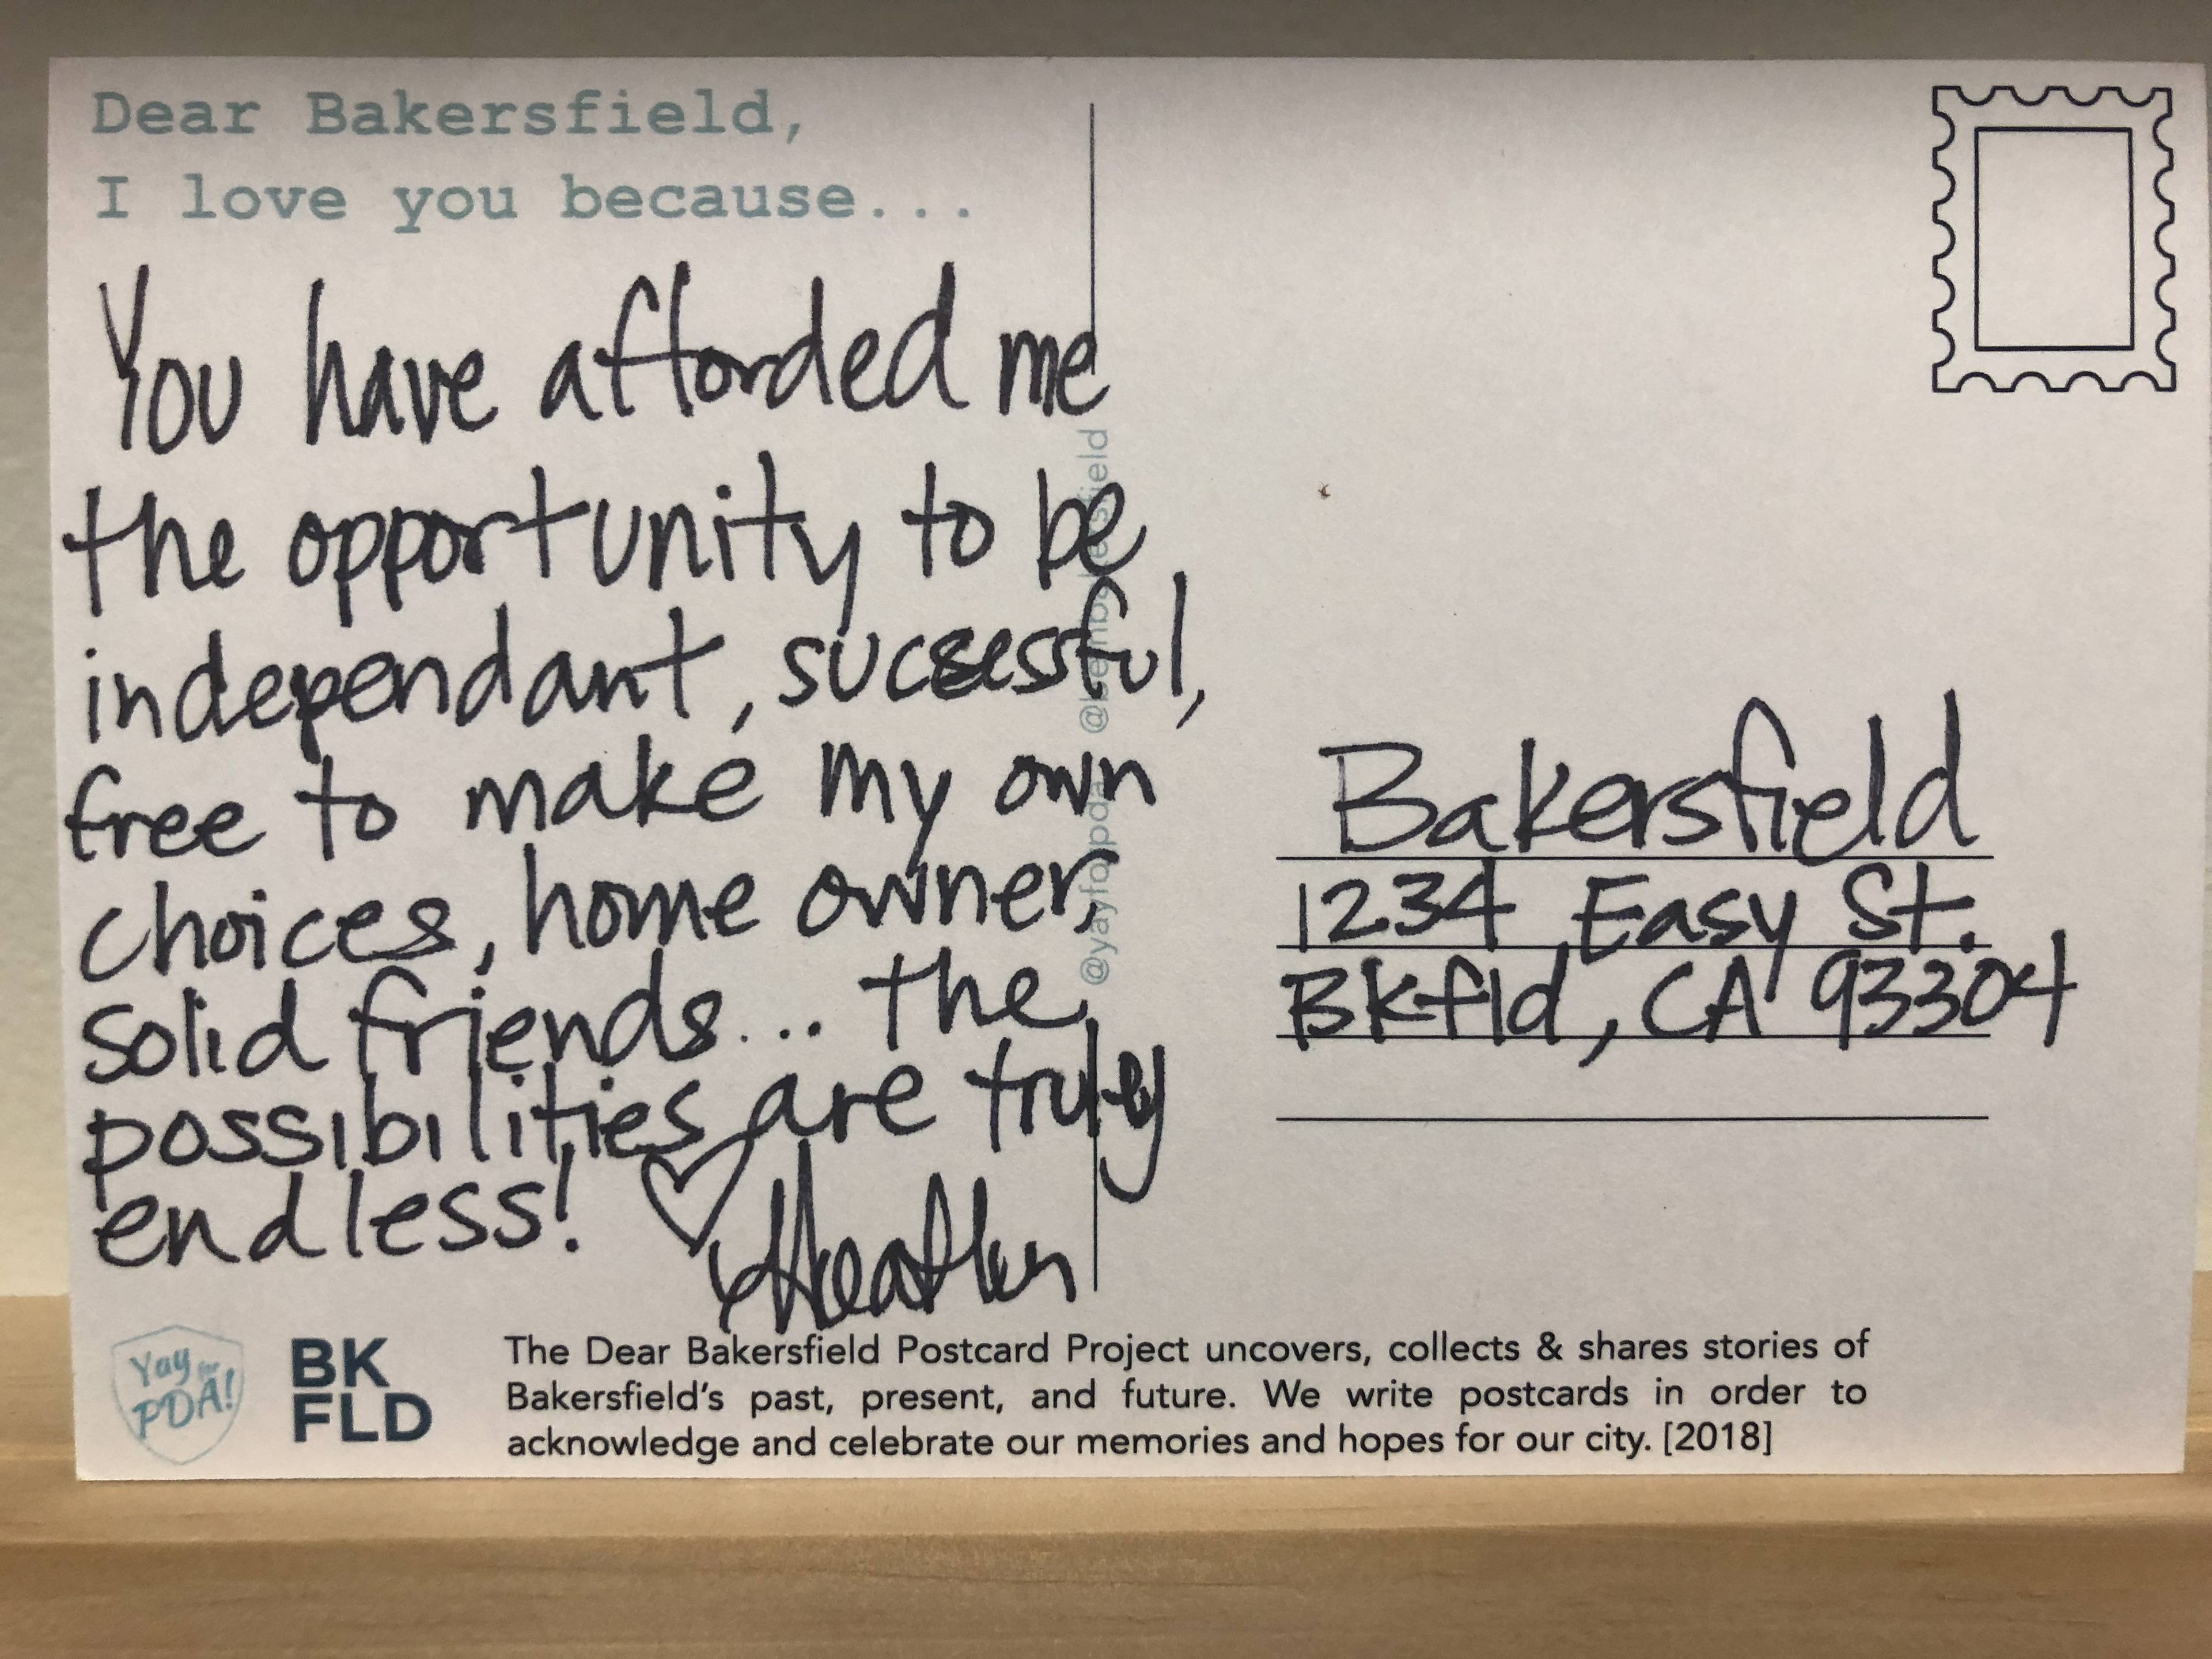 Dear Bakersfield,
I love you because...
You have afforded me
the opportunity to be
independant, sucsessful,
free to make my own
choices, home owner,
solid friends... the
possibilities are truly
endless! ♡ Heather
@yayforpda @
Bakersfield
1234 Easy St.
BKfld, CA 93304
Yay for PDA!
BK
FLD
The Dear Bakersfield Postcard Project uncovers, collects & shares stories of
Bakersfield's past, present, and future. We write postcards in order to
acknowledge and celebrate our memories and hopes for our city. [2018]